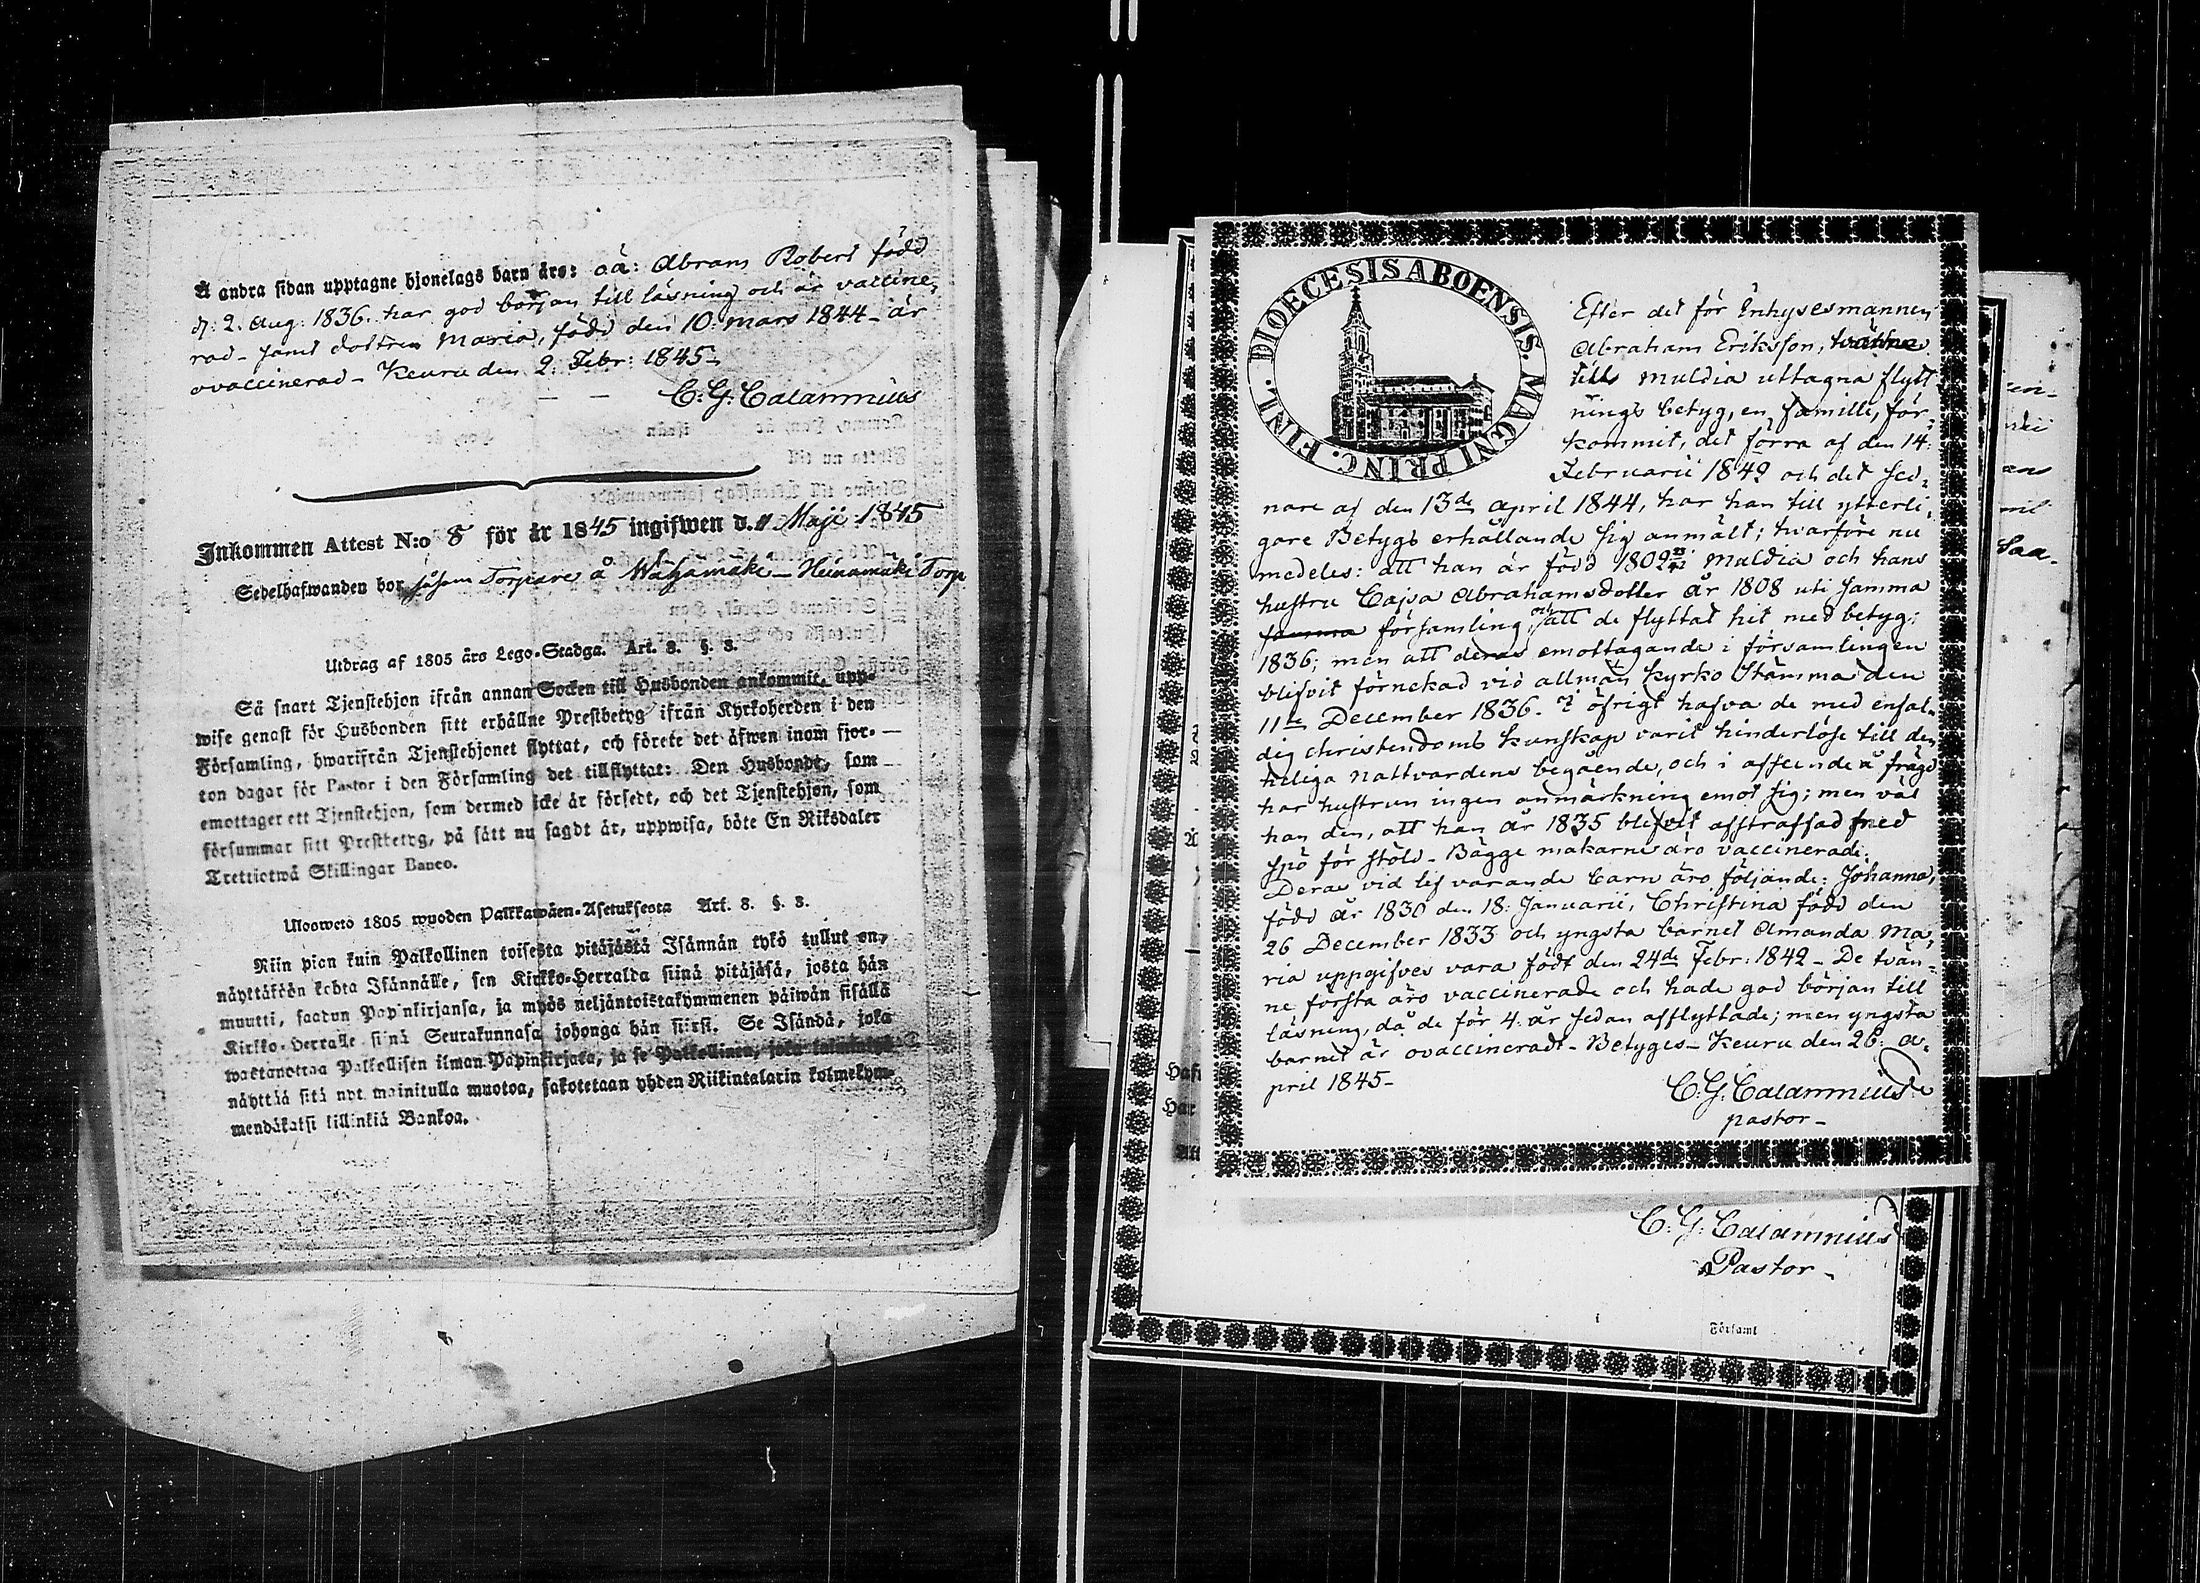 Å andra sidan upptagne hjonelags barn äro: oä: Abram Robert född
d: 2. Aug: 1836. har god början till läsning och är vaccine,
rad – samt dottren Maria, född den 10: mars 1844 – är
ovaccinerad – Keuru den 2: Febr: 1845 –
C: G: Calamnius
Inkommen Attest N:o 8 för år 1845 ingifwen d. 11 Maji 1845
Sedelhafwanden bor såsom Torpare å Wähämäki – Heinamäki Torp
Utdrag af 1805 års Lego-Stadga. Art. 8. §. 3.
Så snart Tjenstehjon ifrån annan Socken till Husbonden ankommit, upp-
wise genast för Husbonden sitt erhållne Prestbetyg ifrån Kyrkoherden i den
Församling, hwarifrån Tjenstehjonet flyttat, och förete det äfwen inom fjor-
ton dagar för Pastor i den Församling det tillflyttat: Den Husbonde, som
emottager ett Tjenstehjon, som dermed icke är försedt, och det Tjenstehjon, som
försummar sitt Prestbetyg, på sätt nu sagdt är, uppwisa, böte En Riksdaler
Trettiotwå Skillingar Banco.
Uloswето 1805 wuoden Palkkawäen-Asetuksesta Art. 8. §. 3.
Niin pian kuin Palkollinen toisesta pitäjästä Isännän tykö tullut on,
näyttäköön kohta Isännälle, sen Kirkko-Herralda siinä pitäjäsä, josta hän
muutti, saadun Papinkirjansa, ja myös neljäntoistakymmenen päiwän sisällä
Kirkko-Herralle siinä Seurakunnasa johonga hän siirsi. Se Isändä, joka
wastanottaa Palkollisen ilman Papinkirjata, ja se Palkollinen, joka laiminlyö
näyttää sitä nyt mainitulla muotoa, sakotetaan yhden Riikintalarin kolmekym-
mendäkaksi killinkiä Bankoa.
DIOECESIS ABOENSIS. MAGNI PRINC. FINL.
Efter det för Inhysesmannen
Abraham Eriksson, tvänne
till Muldia uttagna flytt
nings betyg, en famille, för,
kommit, det förra af den 14:
Februarii 1842 och det sed,
nare af den 13de April 1844, har han till ytterli,
gare Betygs erhållande sig anmält; hvarföre nu
medeles: att han är född 1802 i Muldia och hans
hustru Cajsa Abrahamsdotter år 1808 uti samma
samma församling, och att de flyttat hit med betyg:
1836; men att deras emottagande i församlingen
blifvit förnekad vid allmän Kyrko Stämma den
11te December 1836. I öfrigt hafva de med enfal-
dig christendoms kunskap varit hinderlöse till den
heliga nattvardens begående, och i afseende å frägd
har hustrun ingen anmärkning emot sig; men väl
han den, att han år 1835 blifvit afstraffad med
spö för stöld – Bägge makarne äro vaccinerade.
Deras vid lif varande barn äro följande: Johanna,
född år 1830 den 18: Januarii, Christina född den
26 December 1833 och yngsta barnet Amanda Ma,
ria uppgifves vara födt den 24de Febr: 1842 – De tvän-
ne första äro vaccinerade och hade god början till
läsning, då de för 4: år sedan afflyttade; men yngsta
barnet är ovaccineradt – Betyges – Keuru den 28: A,
pril 1845 –
C: G: Calamnius
pastor –
C: G: Calamnius
Pastor –
Församl